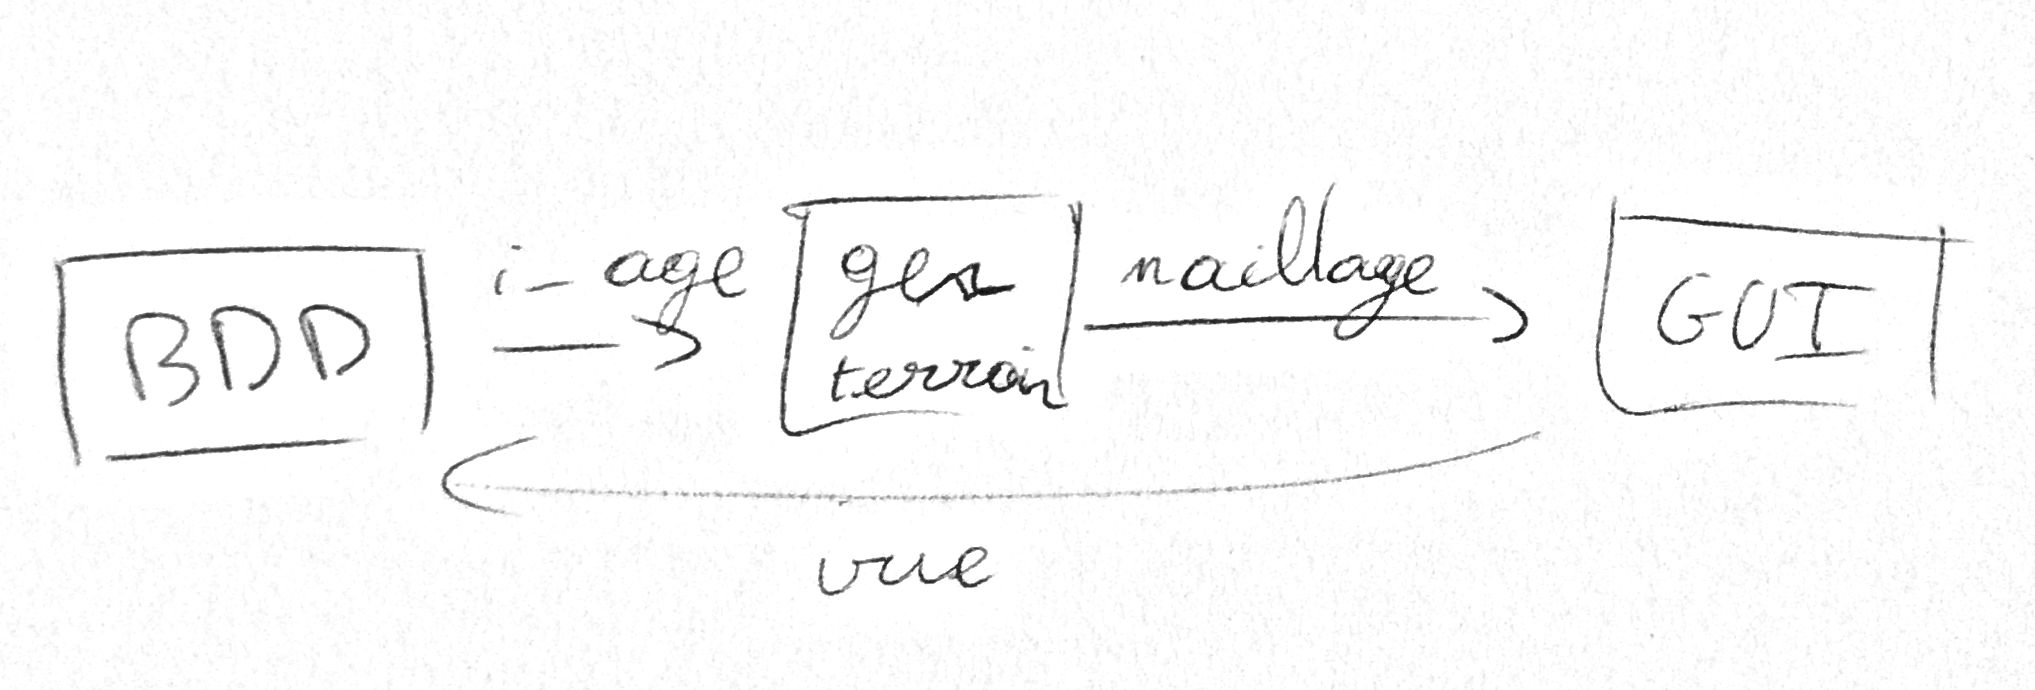 BDD
i_age
gen
terrain
maillage
GUI
vue